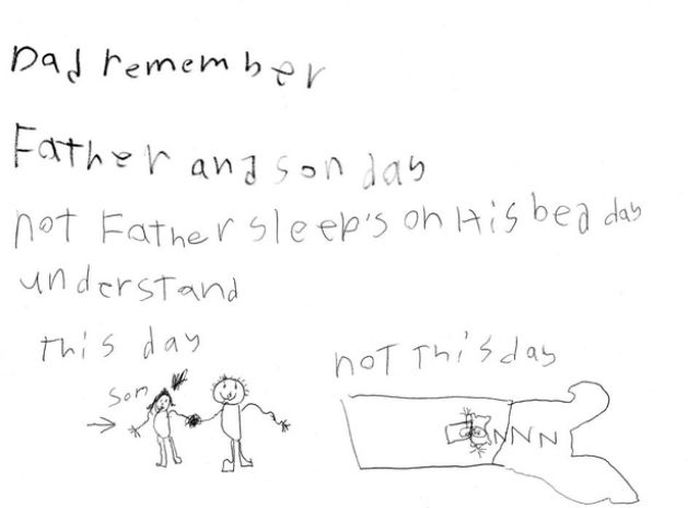 Dad remember
Father and son day
not Father sleep's on His bed day
understand
this day
not this day
son
NNNN